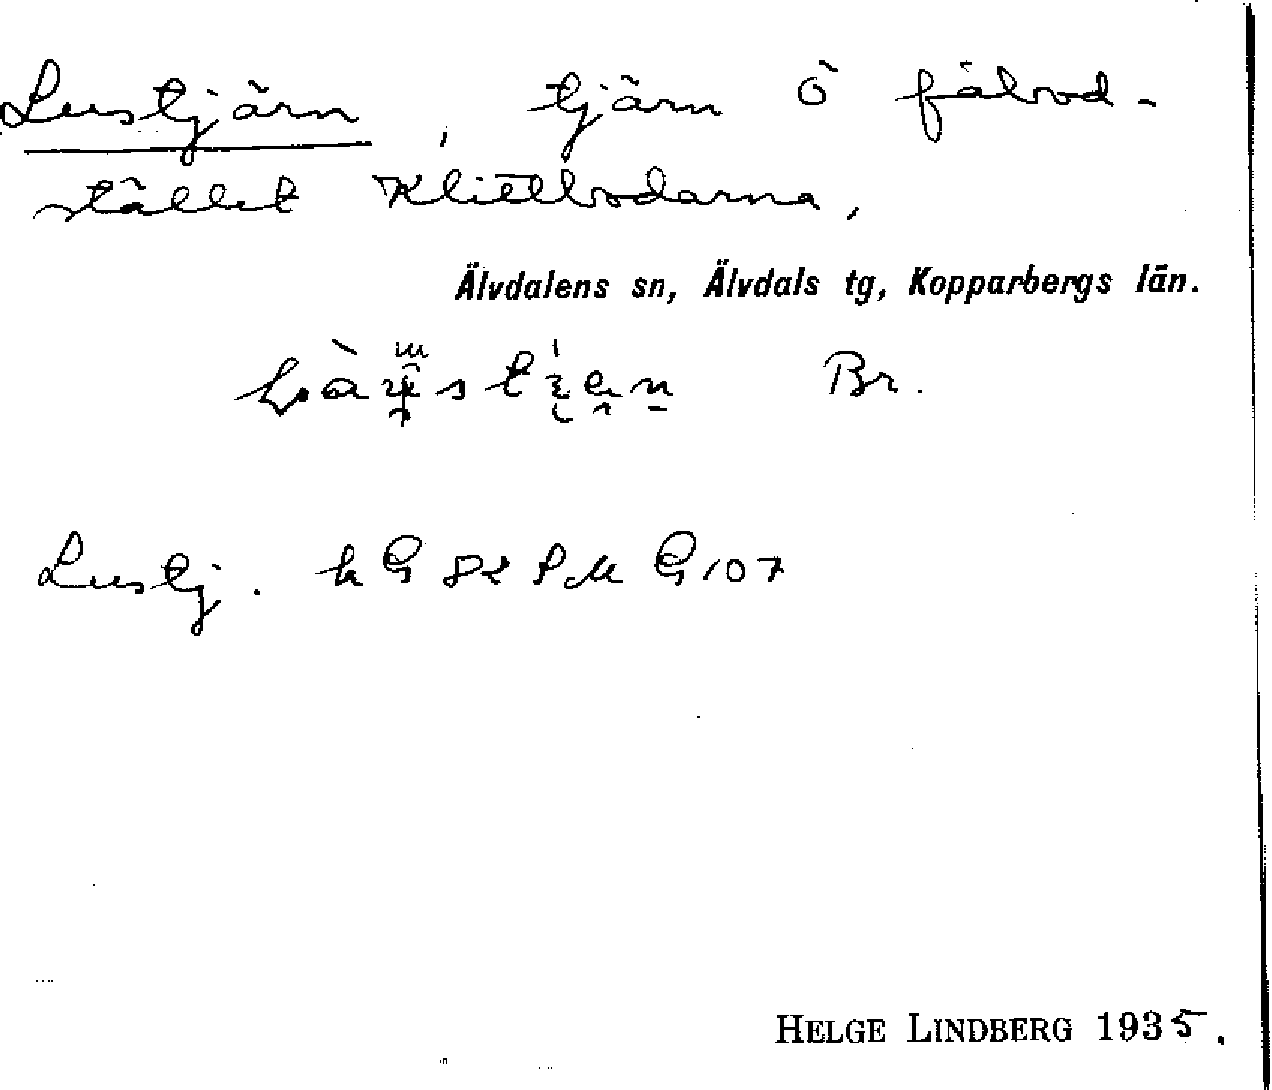 Lustjärn, tjärn ö fäbod-
stället Klittbodarna,
Älvdalens sn, Älvdals tg, Kopparbergs län.
Br.
Lustj. k G 82 PM G 107
HELGE LINDBERG 1935.